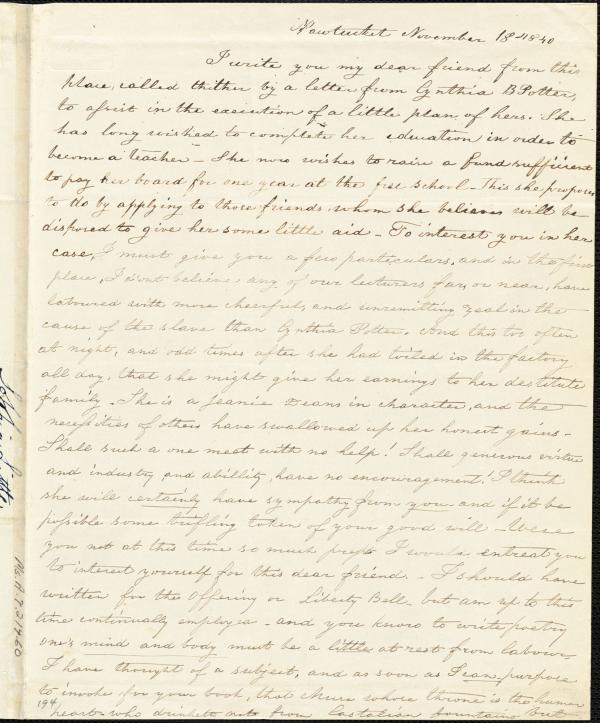 Pawtucket November 18th 1840
I write you my dear friend from this
place, called thither by a letter from Cynthia B Potter,
to assist in the execution of a little plan of hers. She
has long wished to complete her education in order to
become a teacher - She now wishes to raise a fund sufficient
to pay her board for one year at the free school - This she proposes
to do by applying to those friends whom she believes will be
disposed to give her some little aid - To interest you in her
case, I must give you a few particulars, and in the first
place, I don't believe any of our lecturers far, or near, have
laboured with more cheerful, and unremitting zeal in the
cause of the slave than Cynthia Potter. And this too often
at night, and odd times after she had toiled in the factory
all day, that she might give her earnings to her destitute
family. She is a Jeanie Deans in character, and the
necessities of others have swallowed up her honest gains -
Shall such a one meet with no help! Shall generous virtue
and industry and abillity, have no encouragement! I think
she will certainly have sympathy from you and if it be
possible some trifling token of your good will - Were
you not at this time so much press'd I would entreat you
to interest yourself for this dear friend. - I should have
written for the Offering or Liberty Bell - but am up to this
time continually employed - and you know to write poetry
one's mind and body must be a little at rest from labour,
I have thought of a subject, and as soon as I can, purpose
to invoke for your book, that Muse whose throne is the human
194
heart - who drinketh not from Castalian fountains but
Sophia Little
Ms.A.9.2.14.60